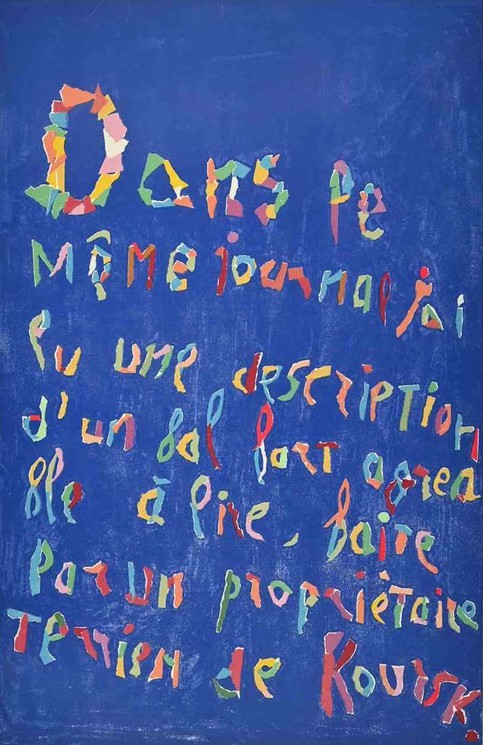 Dans le
même journal j'ai
lu une description
d'un bal fort agréa
ble à lire, faite
par un propriétaire
terrien de Koursk.